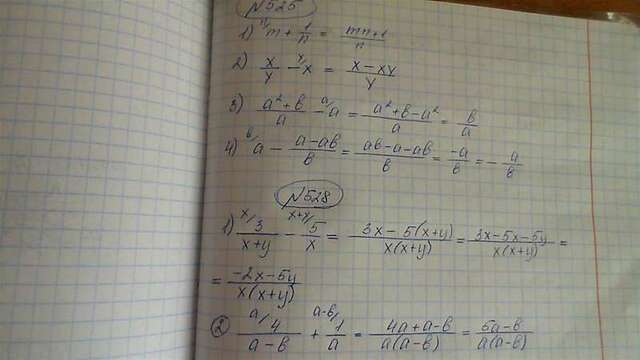 №525
1) n/ m + 1/n = (mn+1)/n
2) x/y - y/ x = (x-xy)/y
3) (a²+b)/a - a/ a = (a²+b-a²)/a = b/a
4) b/ a - (a-ab)/b = (ab-a-ab)/b = -a/b = - a/b
№528
1) x/ 3/(x+y) - x+y/ 5/x = (3x-5(x+y))/(x(x+y)) = (3x-5x-5y)/(x(x+y)) =
= (-2x-5y)/(x(x+y))
2) a/ 4/(a-b) + a-b/ 1/a = (4a+a-b)/(a(a-b)) = (5a-b)/(a(a-b))